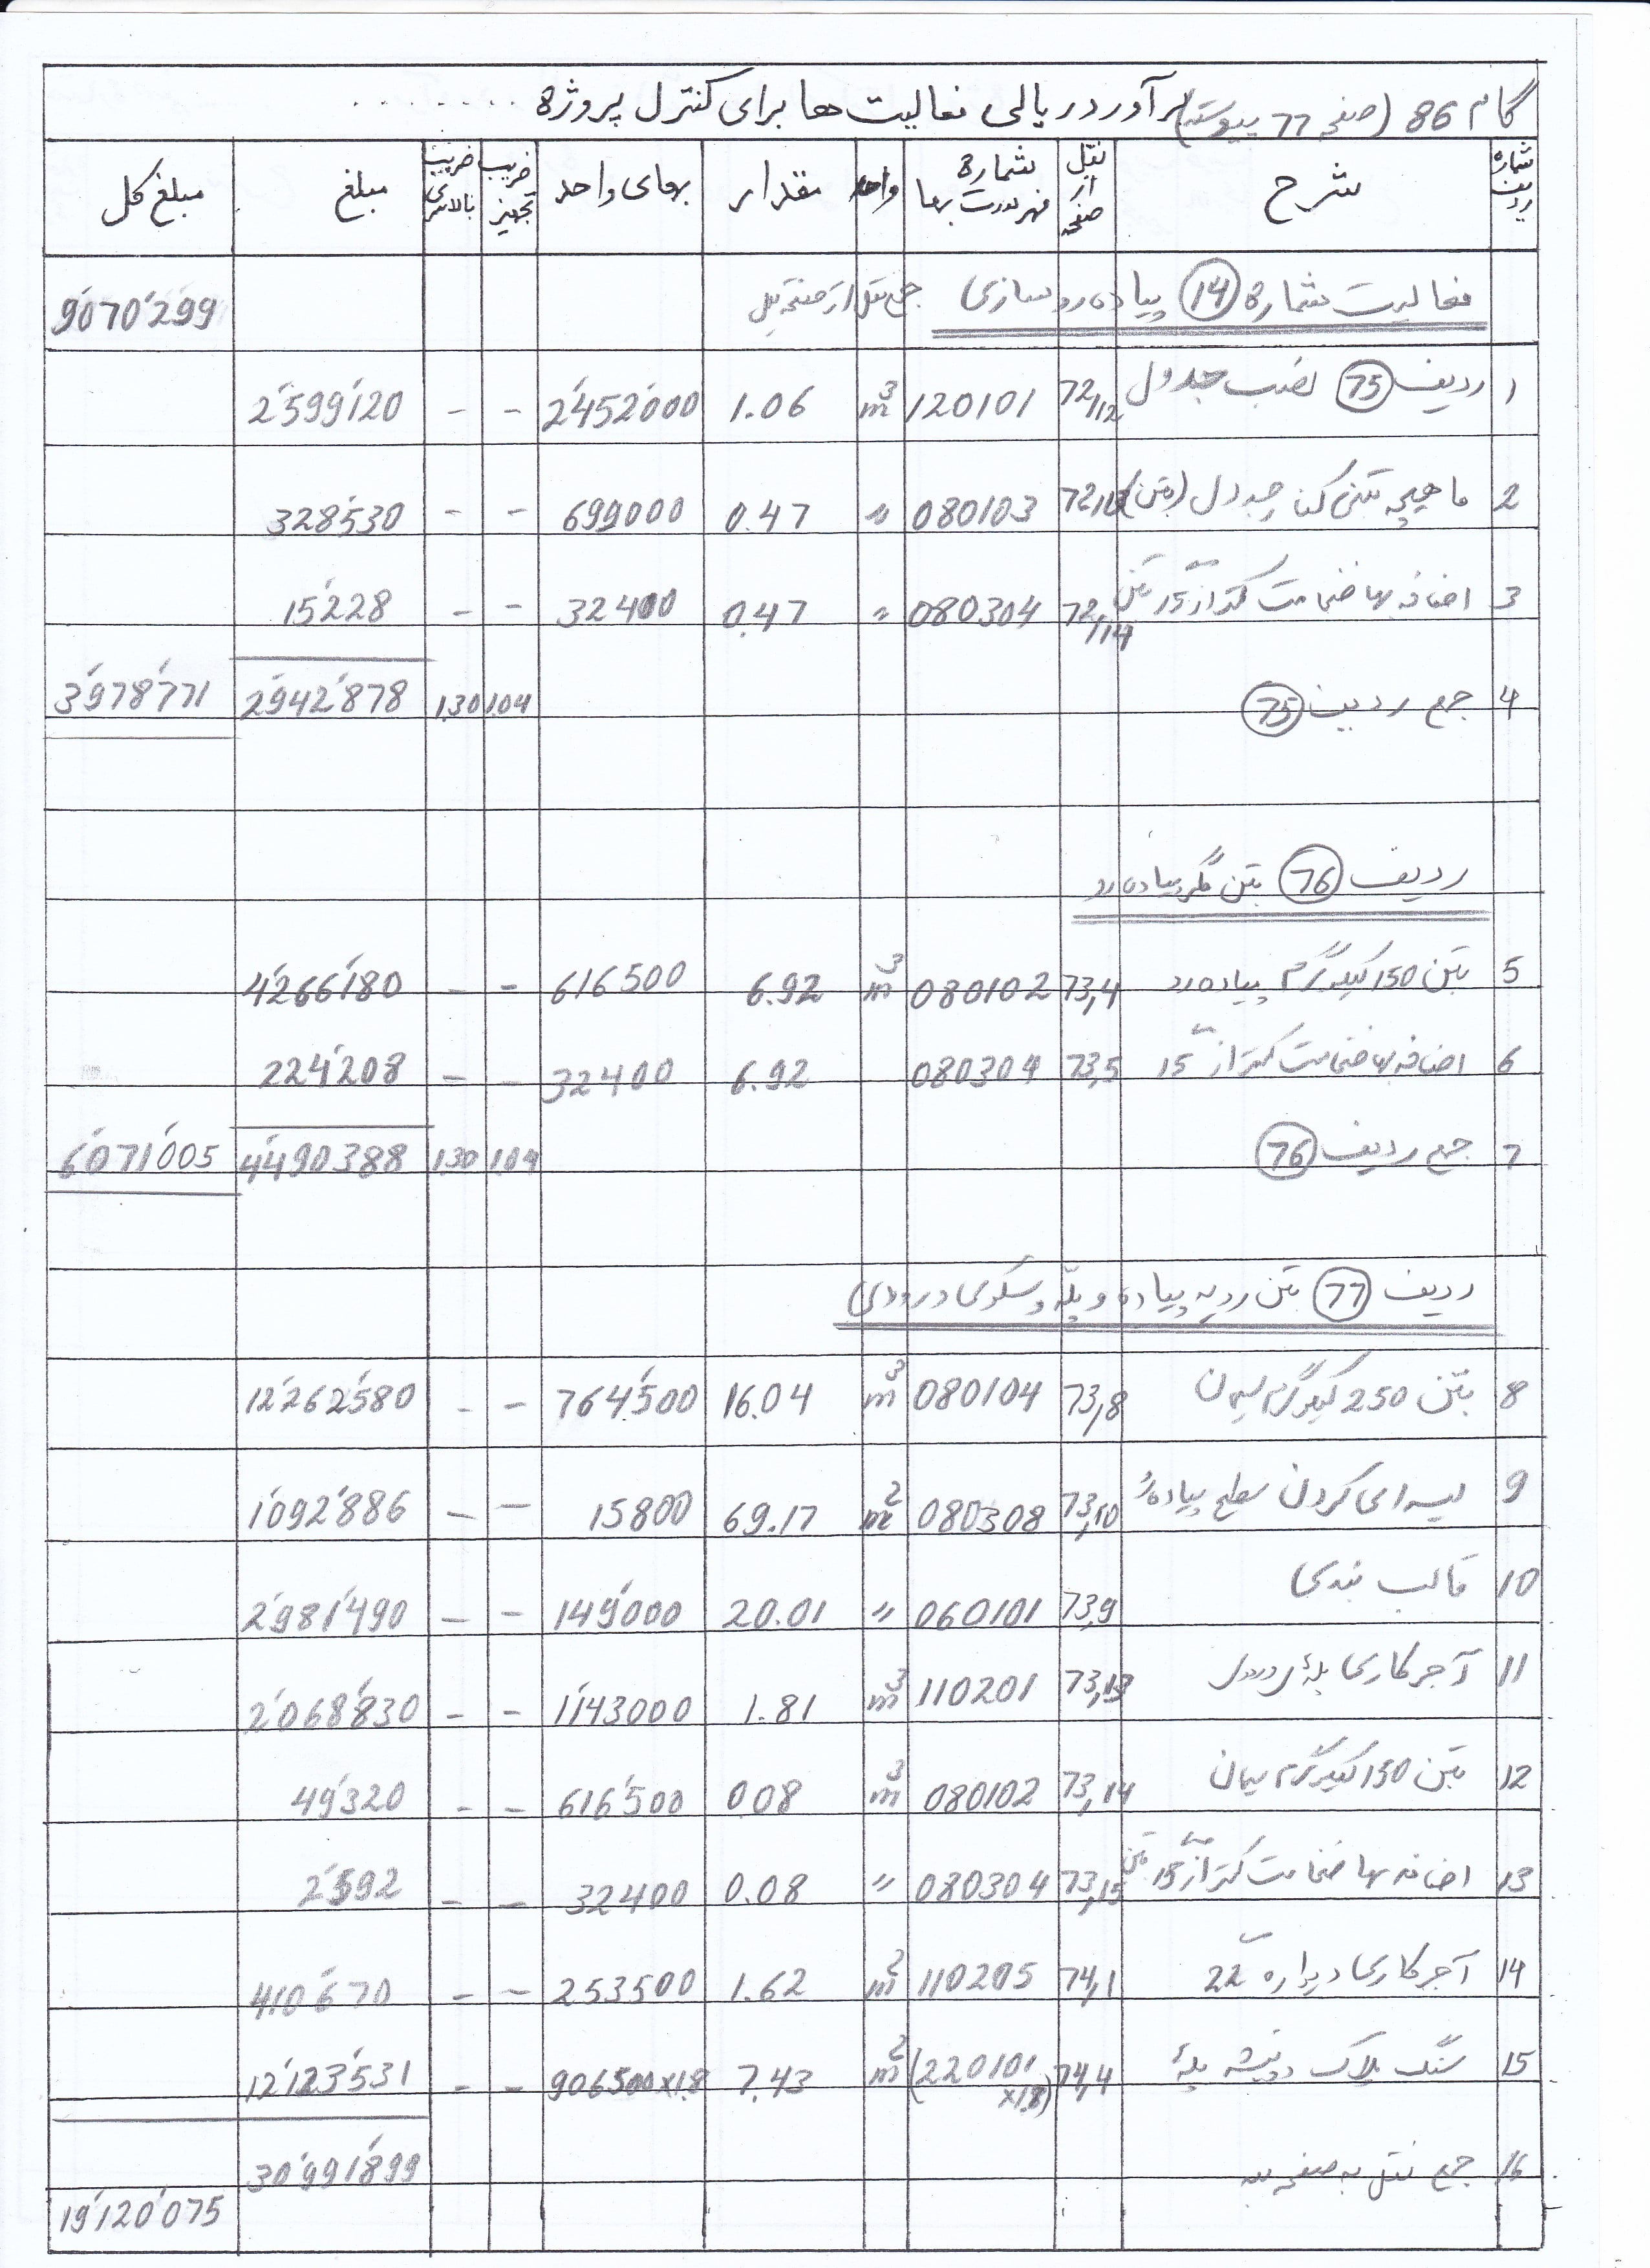 گام 86 (صفحه 77 پیوسته) برآورد ریالی فعالیت ها برای کنترل پروژه ........
شماره ردیف شرح نقل از صفحه شماره فهرست بها واحد مقدار بهای واحد ضریب تجهیز ضریب بالاسری مبلغ مبلغ کل
فعالیت شماره 14 پیاده رو سازی جمع نقل از صفحه قبل 9'070'299
1 ردیف 75 نصب جدول 72/12 120101 m3 1.06 2'452'000 - - 2'599'120
2 ماهیچه بتنی جدول (بتن) 72/13 080103 〃 0.47 699000 - - 328'530
3 اضافه بها ضخامت کمتر از 15 بتن 72/14 080304 〃 0.47 32400 - - 15'228
4 جمع ردیف 75 1.04 1.30 2'942'878 3'978'771
ردیف 76 بتن مگر پیاده رو
5 بتن 150 کیلوگرم پیاده رو 73,4 080102 m3 6.92 616500 - - 4'266'180
6 اضافه بها ضخامت کمتر از 15 73,5 080304 6.92 32400 - - 224'208
7 جمع ردیف 76 1.04 1.30 4'490'388 6'071'005
ردیف 77 بتن رویه پیاده و پله و سکوی ورودی
8 بتن 250 کیلوگرم سیمان 73,8 080104 m3 16.04 764'500 - - 12'262'580
9 لیسه ای کردن سطح پیاده رو 73,10 080308 m2 69.17 15800 - - 1'092'886
10 قالب بندی 73,9 060101 〃 20.01 149'000 - - 2'981'490
11 آجرکاری پله 73,13 110201 m3 1.81 1'143000 - - 2'068'830
12 بتن 150 کیلوگرم سیمان 73,14 080102 m3 0.08 616'500 - - 49'320
13 اضافه بها ضخامت کمتر از 15 بتن 73,15 080304 〃 0.08 32400 - - 2'592
14 آجرکاری دیواره 22 74,1 110205 m2 1.62 253500 - - 410'670
15 سنگ پلاک پله 74,4 (220101 ×1.8) m2 7.43 906500×1.8 - - 12'123'531
16 جمع نقل به صفحه بعد 30'991'899
19'120'075